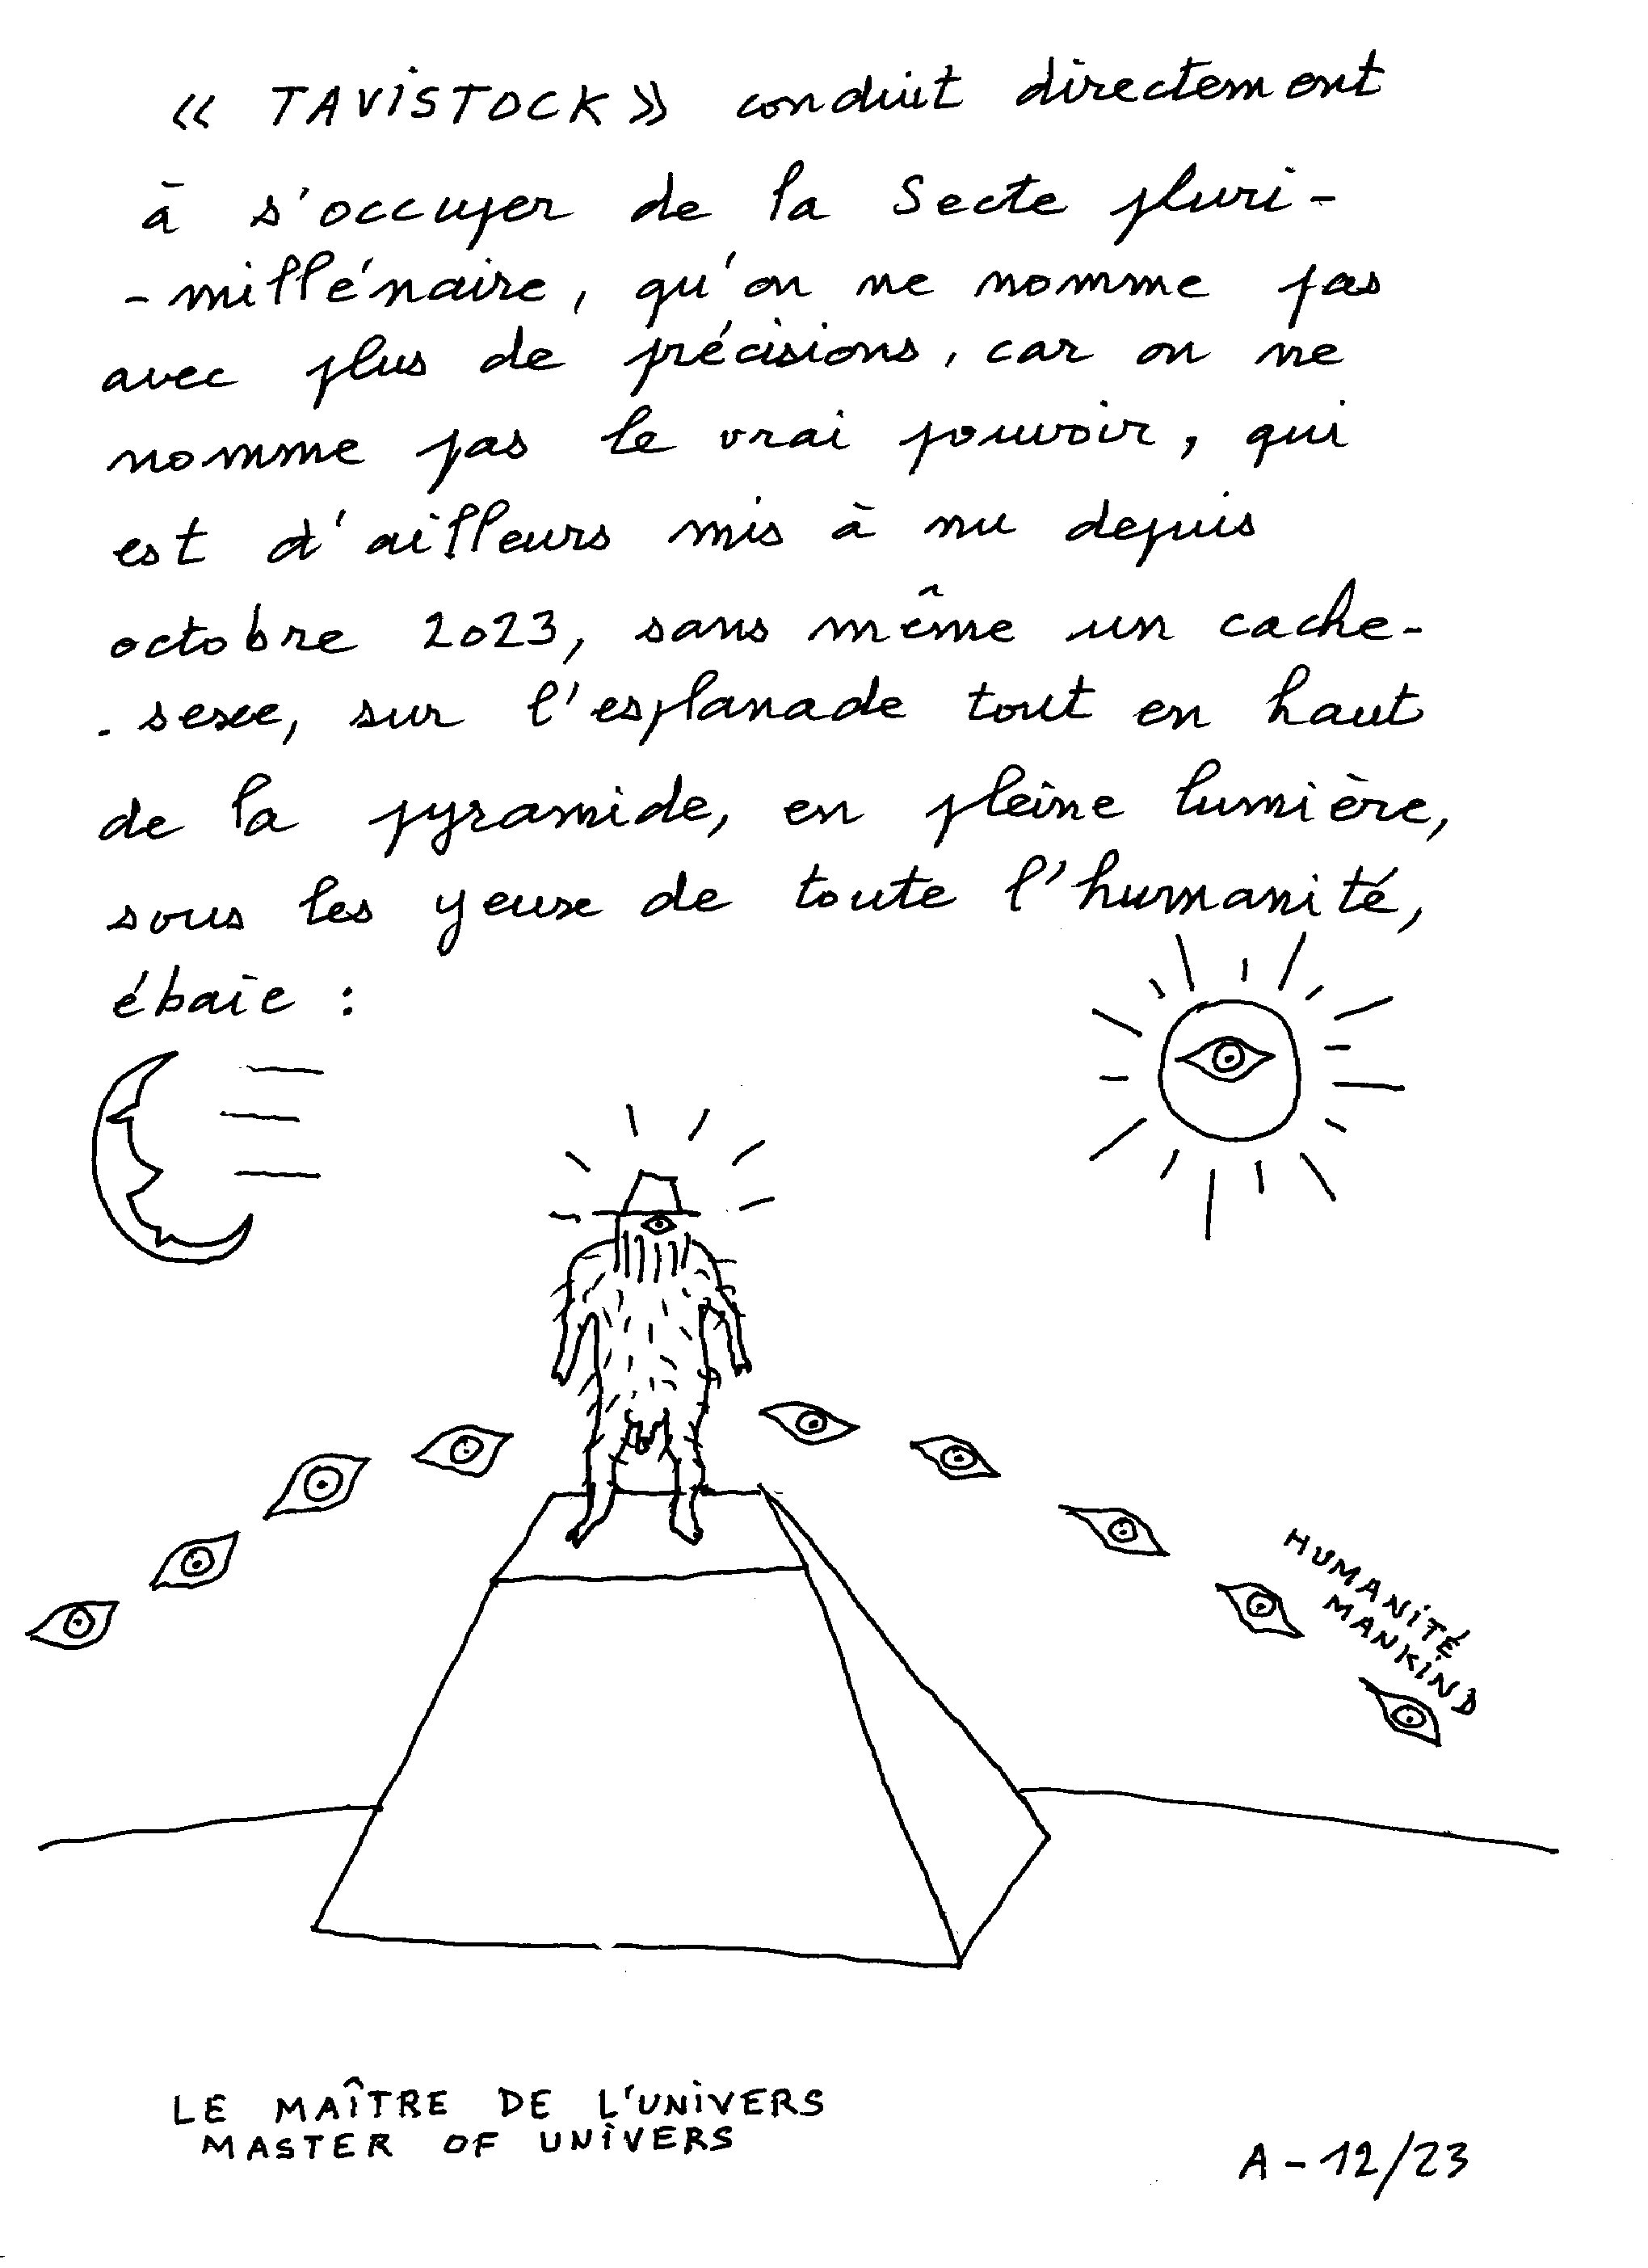 « TAViSTOCK » conduit directement
à s'occuper de la Secte pluri-
-millénaire, qu'on ne nomme pas
avec plus de précisions, car on ne
nomme pas le vrai pouvoir, qui
est d'ailleurs mis à nu depuis
octobre 2023, sans même un cache-
-sexe, sur l'esplanade tout en haut
de la pyramide, en pleine lumière,
sous les yeux de toute l'humanité,
ébaïe :
HUMANiTÉ
MANKiND
LE MAÎTRE DE L'UNiVERS
MASTER OF UNiVERS
A - 12/23